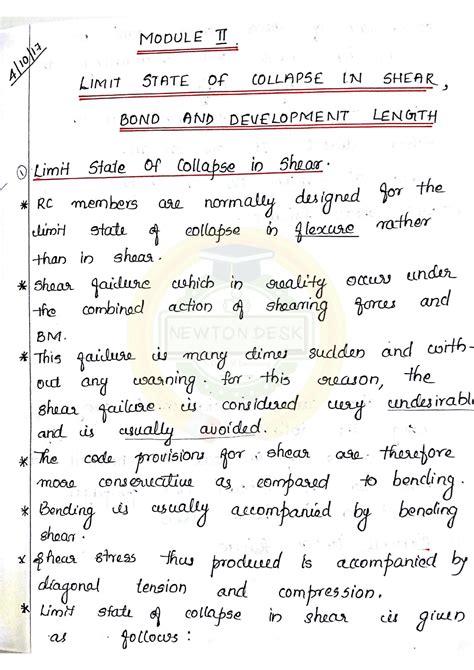 4/10/17
MODULE II.
LIMIT STATE OF COLLAPSE IN SHEAR,
BOND AND DEVELOPMENT LENGTH
① Limit State Of Collapse in Shear.
* RC members are normally designed for the
limit state of collapse in flexure rather
than in shear.
* Shear failure which in reality occurs under
the combined action of shearing forces and
BM.
NEWTON DESK
* This failure is many times sudden and with-
out any warning. for this reason, the
shear failure is considered very undesirable
and is usually avoided.
* The code provisions for shear are therefore
more conservative as compared to bending.
* Bending is usually accompanied by bending
shear.
* Shear stress thus produced is accompanied by
diagonal tension and compression.
* Limit state of collapse in shear is given
as follows: